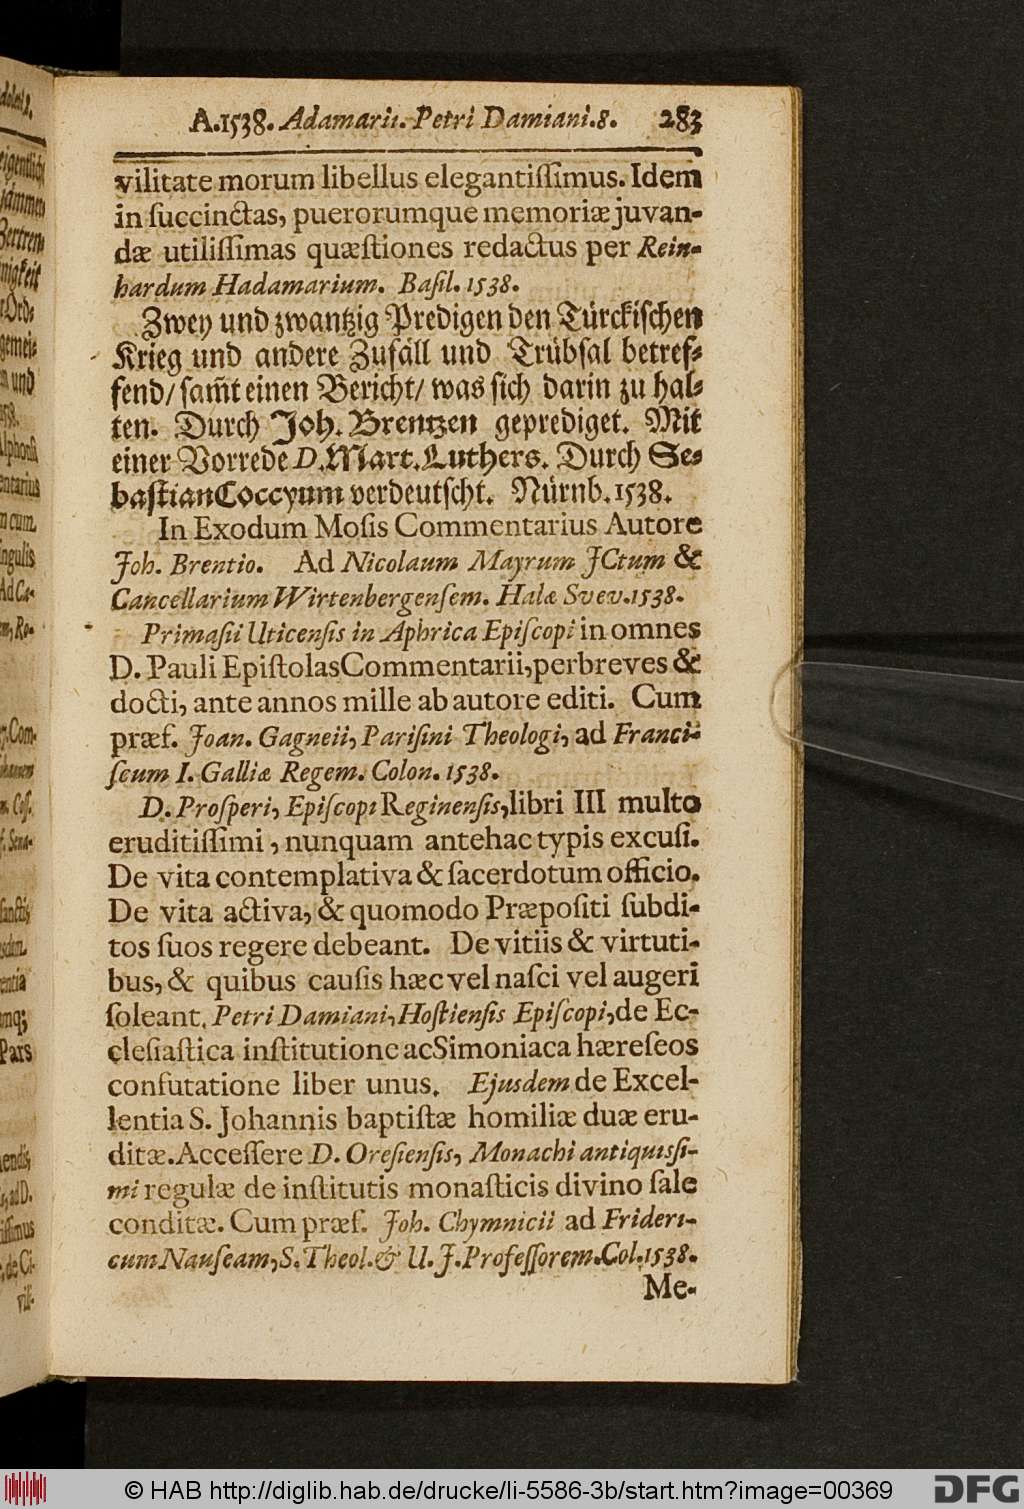 A.1538. Adamarii. Petri Damiani.8. 283
vilitate morum libellus elegantiſſimus. Idem
in ſuccinctas, puerorumque memoriæ juvan-
dæ utiliſſimas quæſtiones redactus per Rein-
hardum Hadamarium. Baſil. 1538.
Zwey und zwantzig Predigen den Türckiſchen
Krieg und andere Zufäll und Trübſal betref-
fend/ ſam̃t einen Bericht/ was ſich darin zu hal-
ten. Durch Joh. Brentzen geprediget. Mit
einer Vorrede D. Mart. Luthers. Durch Se-
baſtian Coccyum verdeutſcht. Nürnb. 1538.
In Exodum Moſis Commentarius Autore
Joh. Brentio. Ad Nicolaum Mayrum JCtum &
Cancellarium Wirtenbergenſem. Halæ Svev. 1538.
Primaſii Uticenſis in Aphrica Epiſcopi in omnes
D. Pauli Epiſtolas Commentarii, perbreves &
docti, ante annos mille ab autore editi. Cum
præf. Joan. Gagneii, Pariſini Theologi, ad Franci-
ſcum I. Galliæ Regem. Colon. 1538.
D. Proſperi, Epiſcopi Reginenſis, libri III multo
eruditiſſimi, nunquam antehac typis excuſi.
De vita contemplativa & ſacerdotum officio.
De vita activa, & quomodo Præpoſiti ſubdi-
tos ſuos regere debeant. De vitiis & virtuti-
bus, & quibus cauſis hæc vel naſci vel augeri
ſoleant. Petri Damiani, Hoſtienſis Epiſcopi, de Ec-
cleſiaſtica inſtitutione ac Simoniaca hæreſeos
confutatione liber unus. Ejusdem de Excel-
lentia S. Johannis baptiſtæ homiliæ duæ eru-
ditæ. Acceſſere D. Oreſienſis, Monachi antiquiſſi-
mi regulæ de inſtitutis monaſticis divino ſale
conditæ. Cum præf. Joh. Chymnicii ad Frideri-
cum Nauſeam, S. Theol. & U. J. Profeſſorem. Col. 1538.
Me-
© HAB http://diglib.hab.de/drucke/li-5586-3b/start.htm?image=00369
DFG